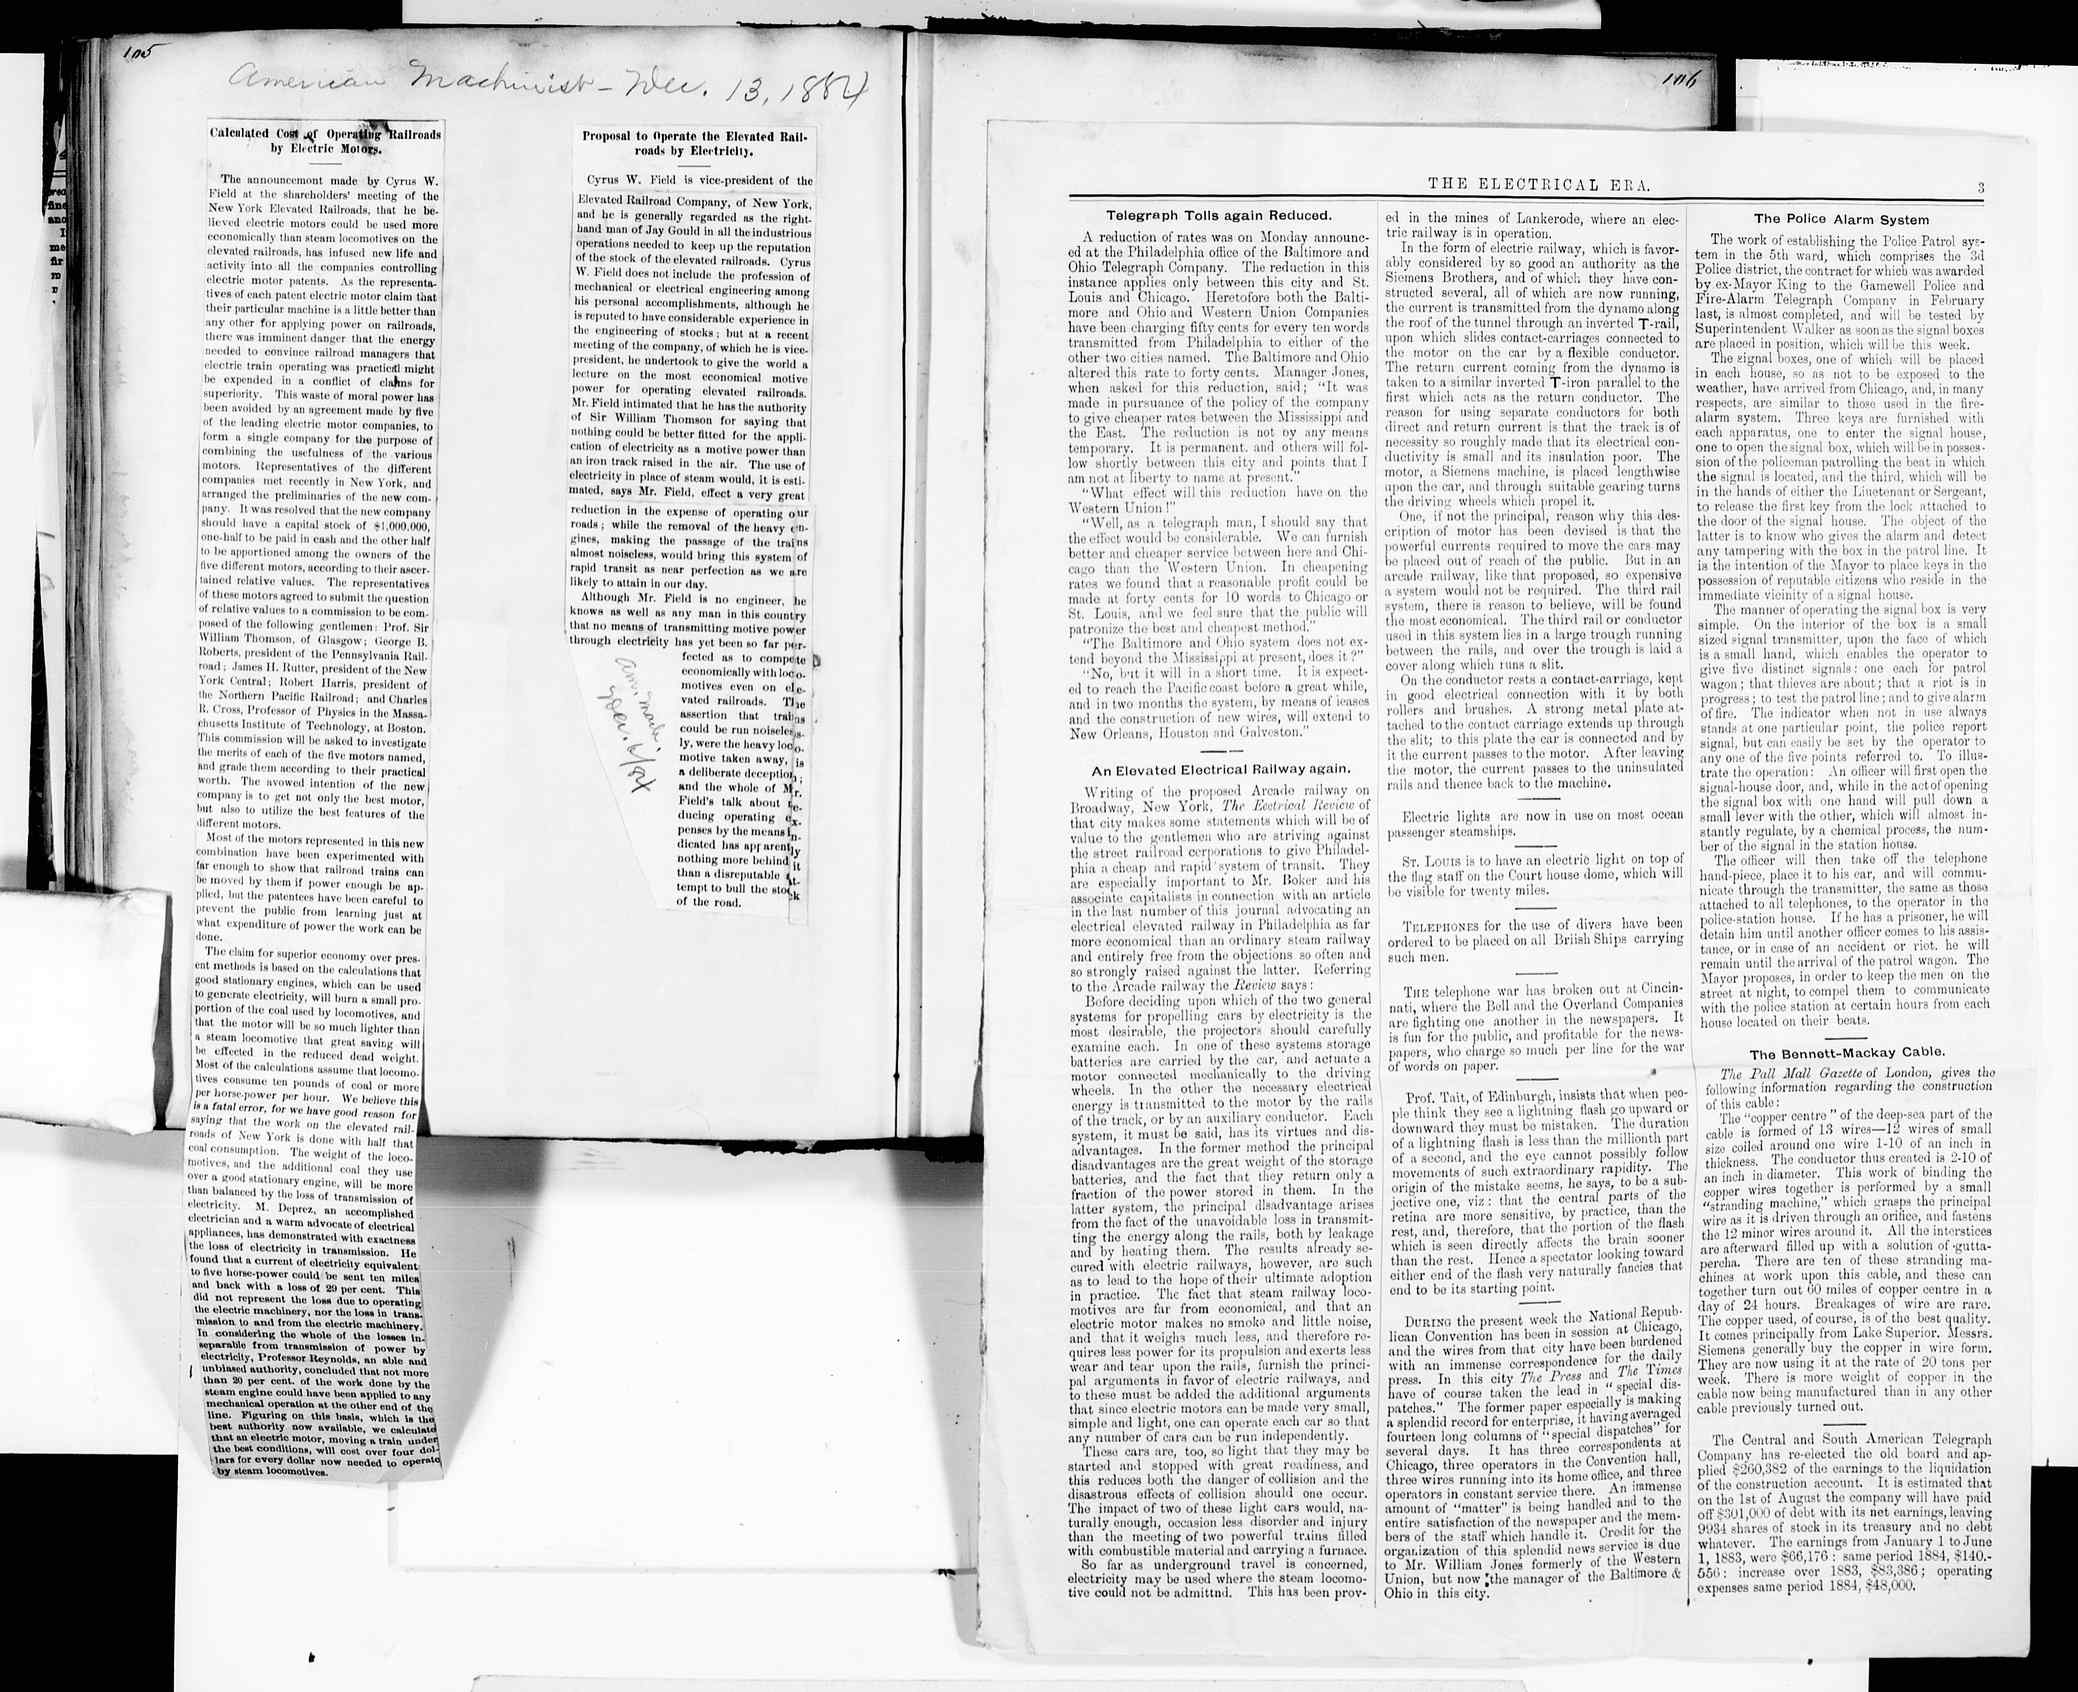 105
American Machinist - Dec. 13, 1884
Calculated Cost of Operating Railroads
by Electric Motors.
The announcement made by Cyrus W.
Field at the shareholders' meeting of the
New York Elevated Railroads, that he be-
lieved electric motors could be used more
economically than steam locomotives on the
elevated railroads, has infused new life and
activity into all the companies controlling
electric motor patents. As the representa-
tives of each patent electric motor claim that
their particular machine is a little better than
any other for applying power on railroads,
there was imminent danger that the energy
needed to convince railroad managers that
electric train operating was practical might
be expended in a conflict of claims for
superiority. This waste of moral power has
been avoided by an agreement made by five
of the leading electric motor companies, to
form a single company for the purpose of
combining the usefulness of the various
motors. Representatives of the different
companies met recently in New York, and
arranged the preliminaries of the new com-
pany. It was resolved that the new company
should have a capital stock of $1,000,000,
one-half to be paid in cash and the other half
to be apportioned among the owners of the
five different motors, according to their ascer-
tained relative values. The representatives
of these motors agreed to submit the question
of relative values to a commission to be com-
posed of the following gentlemen: Prof. Sir
William Thomson, of Glasgow; George B.
Roberts, president of the Pennsylvania Rail-
road; James H. Rutter, president of the New
York Central; Robert Harris, president of
the Northern Pacific Railroad; and Charles
R. Cross, Professor of Physics in the Massa-
chusetts Institute of Technology, at Boston.
This commission will be asked to investigate
the merits of each of the five motors named,
and grade them according to their practical
worth. The avowed intention of the new
company is to get not only the best motor,
but also to utilize the best features of the
different motors.
Most of the motors represented in this new
combination have been experimented with
far enough to show that railroad trains can
be moved by them if power enough be ap-
plied, but the patentees have been careful to
prevent the public from learning just at
what expenditure of power the work can be
done.
The claim for superior economy over pres-
ent methods is based on the calculations that
good stationary engines, which can be used
to generate electricity, will burn a small pro-
portion of the coal used by locomotives, and
that the motor will be so much lighter than
a steam locomotive that great saving will
be effected in the reduced dead weight.
Most of the calculations assume that locomo-
tives consume ten pounds of coal or more
per horse-power per hour. We believe this
is a fatal error, for we have good reason for
saying that the work on the elevated rail-
roads of New York is done with half that
coal consumption. The weight of the loco-
motives, and the additional coal they use
over a good stationary engine, will be more
than balanced by the loss of transmission of
electricity. M. Deprez, an accomplished
electrician and a warm advocate of electrical
appliances, has demonstrated with exactness
the loss of electricity in transmission. He
found that a current of electricity equivalent
to five horse-power could be sent ten miles
and back with a loss of 29 per cent. This
did not represent the loss due to operating
the electric machinery, nor the loss in trans-
mission to and from the electric machinery.
In considering the whole of the losses in-
separable from transmission of power by
electricity, Professor Reynolds, an able and
unbiased authority, concluded that not more
than 20 per cent. of the work done by the
steam engine could have been applied to any
mechanical operation at the other end of the
line. Figuring on this basis, which is the
best authority now available, we calculate
that an electric motor, moving a train under
the best conditions, will cost over four dol-
lars for every dollar now needed to operate
by steam locomotives.
Proposal to Operate the Elevated Rail-
roads by Electricity.
Cyrus W. Field is vice-president of the
Elevated Railroad Company, of New York,
and he is generally regarded as the right-
hand man of Jay Gould in all the industrious
operations needed to keep up the reputation
of the stock of the elevated railroads. Cyrus
W. Field does not include the profession of
mechanical or electrical engineering among
his personal accomplishments, although he
is reputed to have considerable experience in
the engineering of stocks; but at a recent
meeting of the company, of which he is vice-
president, he undertook to give the world a
lecture on the most economical motive
power for operating elevated railroads.
Mr. Field intimated that he has the authority
of Sir William Thomson for saying that
nothing could be better fitted for the appli-
cation of electricity as a motive power than
an iron track raised in the air. The use of
electricity in place of steam would, it is esti-
mated, says Mr. Field, effect a very great
reduction in the expense of operating our
roads; while the removal of the heavy en-
gines, making the passage of the trains
almost noiseless, would bring this system of
rapid transit as near perfection as we are
likely to attain in our day.
Although Mr. Field is no engineer, he
knows as well as any man in this country
that no means of transmitting motive power
through electricity has yet been so far per-
fected as to compete
economically with loco-
motives even on ele-
vated railroads. The
assertion that trains
could be run noiseless-
ly, were the heavy loco-
motive taken away, is
a deliberate deception;
and the whole of Mr.
Field's talk about re-
ducing operating ex-
penses by the means in-
dicated has apparently
nothing more behind it
than a disreputable at-
tempt to bull the stock
of the road.
Am. Mach.
Dec. 6/84
106
THE ELECTRICAL ERA.
3
Telegraph Tolls again Reduced.
A reduction of rates was on Monday announc-
ed at the Philadelphia office of the Baltimore and
Ohio Telegraph Company. The reduction in this
instance applies only between this city and St.
Louis and Chicago. Heretofore both the Balti-
more and Ohio and Western Union Companies
have been charging fifty cents for every ten words
transmitted from Philadelphia to either of the
other two cities named. The Baltimore and Ohio
altered this rate to forty cents. Manager Jones,
when asked for this reduction, said; "It was
made in pursuance of the policy of the company
to give cheaper rates between the Mississippi and
the East. The reduction is not by any means
temporary. It is permanent. and others will fol-
low shortly between this city and points that I
am not at liberty to name at present."
"What effect will this reduction have on the
Western Union!"
"Well, as a telegraph man, I should say that
the effect would be considerable. We can furnish
better and cheaper service between here and Chi-
cago than the Western Union. In cheapening
rates we found that a reasonable profit could be
made at forty cents for 10 words to Chicago or
St. Louis, and we feel sure that the public will
patronize the best and cheapest method."
"The Baltimore and Ohio system does not ex-
tend beyond the Mississippi at present, does it?"
"No, but it will in a short time. It is expect-
ed to reach the Pacific coast before a great while,
and in two months the system, by means of leases
and the construction of new wires, will extend to
New Orleans, Houston and Galveston."
An Elevated Electrical Railway again.
Writing of the proposed Arcade railway on
Broadway, New York, The Eectrical Review of
that city makes some statements which will be of
value to the gentlemen who are striving against
the street railroad corporations to give Philadel-
phia a cheap and rapid system of transit. They
are especially important to Mr. Boker and his
associate capitalists in connection with an article
in the last number of this journal advocating an
electrical elevated railway in Philadelphia as far
more economical than an ordinary steam railway
and entirely free from the objections so often and
so strongly raised against the latter. Referring
to the Arcade railway the Review says:
Before deciding upon which of the two general
systems for propelling cars by electricity is the
most desirable, the projectors should carefully
examine each. In one of these systems storage
batteries are carried by the car, and actuate a
motor connected mechanically to the driving
wheels. In the other the necessary electrical
energy is transmitted to the motor by the rails
of the track, or by an auxiliary conductor. Each
system, it must be said, has its virtues and dis-
advantages. In the former method the principal
disadvantages are the great weight of the storage
batteries, and the fact that they return only a
fraction of the power stored in them. In the
latter system, the principal disadvantage arises
from the fact of the unavoidable loss in transmit-
ting the energy along the rails, both by leakage
and by heating them. The results already se-
cured with electric railways, however, are such
as to lead to the hope of their ultimate adoption
in practice. The fact that steam railway loco-
motives are far from economical, and that an
electric motor makes no smoke and little noise,
and that it weighs much less, and therefore re-
quires less power for its propulsion and exerts less
wear and tear upon the rails, furnish the princi-
pal arguments in favor of electric railways, and
to these must be added the additional arguments
that since electric motors can be made very small,
simple and light, one can operate each car so that
any number of cars can be run independently.
These cars are, too, so light that they may be
started and stopped with great readiness, and
this reduces both the danger of collision and the
disastrous effects of collision should one occur.
The impact of two of these light cars would, na-
turally enough, occasion less disorder and injury
than the meeting of two powerful trains filled
with combustible material and carrying a furnace.
So far as underground travel is concerned,
electricity may be used where the steam locomo-
tive could not be admittnd. This has been prov-
ed in the mines of Lankerode, where an elec-
tric railway is in operation.
In the form of electric railway, which is favor-
ably considered by so good an authority as the
Siemens Brothers, and of which they have con-
structed several, all of which are now running,
the current is transmitted from the dynamo along
the roof of the tunnel through an inverted T-rail,
upon which slides contact-carriages connected to
the motor on the car by a flexible conductor.
The return current coming from the dynamo is
taken to a similar inverted T-iron parallel to the
first which acts as the return conductor. The
reason for using separate conductors for both
direct and return current is that the track is of
necessity so roughly made that its electrical con-
ductivity is small and its insulation poor. The
motor, a Siemens machine, is placed lengthwise
upon the car, and through suitable gearing turns
the driving wheels which propel it.
One, if not the principal, reason why this des-
cription of motor has been devised is that the
powerful currents required to move the cars may
be placed out of reach of the public. But in an
arcade railway, like that proposed, so expensive
a system would not be required. The third rail
system, there is reason to believe, will be found
the most economical. The third rail or conductor
used in this system lies in a large trough running
between the rails, and over the trough is laid a
cover along which runs a slit.
On the conductor rests a contact-carriage, kept
in good electrical connection with it by both
rollers and brushes. A strong metal plate at-
tached to the contact carriage extends up through
the slit; to this plate the car is connected and by
it the current passes to the motor. After leaving
the motor, the current passes to the uninsulated
rails and thence back to the machine.
Electric lights are now in use on most ocean
passenger steamships.
ST. LOUIS is to have an electric light on top of
the flag staff on the Court house dome, which will
be visible for twenty miles.
TELEPHONES for the use of divers have been
ordered to be placed on all Briish Ships carrying
such men.
THE telephone war has broken out at Cincin-
nati, where the Bell and the Overland Companies
are fighting one another in the newspapers. It
is fun for the public, and profitable for the news-
papers, who charge so much per line for the war
of words on paper.
Prof. Tait, of Edinburgh, insists that when peo-
ple think they see a lightning flash go upward or
downward they must be mistaken. The duration
of a lightning flash is less than the millionth part
of a second, and the eye cannot possibly follow
movements of such extraordinary rapidity. The
origin of the mistake seems, he says, to be a sub-
jective one, viz: that the central parts of the
retina are more sensitive, by practice, than the
rest, and, therefore, that the portion of the flash
which is seen directly affects the brain sooner
than the rest. Hence a spectator looking toward
either end of the flash very naturally fancies that
end to be its starting point.
DURING the present week the National Repub-
lican Convention has been in session at Chicago,
and the wires from that city have been burdened
with an immense correspondence for the daily
press. In this city The Press and The Times
have of course taken the lead in "special dis-
patches." The former paper especially is making
a splendid record for enterprise, it having averaged
fourteen long columns of "special dispatches" for
several days. It has three correspondents at
Chicago, three operators in the Convention hall,
three wires running into its home office, and three
operators in constant service there. An immense
amount of "matter" is being handled and to the
entire satisfaction of the newspaper and the mem-
bers of the staff which handle it. Credit for the
organization of this splendid news service is due
to Mr. William Jones formerly of the Western
Union, but now the manager of the Baltimore &
Ohio in this city.
The Police Alarm System
The work of establishing the Police Patrol sys-
tem in the 5th ward, which comprises the 3d
Police district, the contract for which was awarded
by ex-Mayor King to the Gamewell Police and
Fire-Alarm Telegraph Company in February
last, is almost completed, and will be tested by
Superintendent Walker as soon as the signal boxes
are placed in position, which will be this week.
The signal boxes, one of which will be placed
in each house, so as not to be exposed to the
weather, have arrived from Chicago, and, in many
respects, are similar to those used in the fire-
alarm system. Three keys are furnished with
each apparatus, one to enter the signal house,
one to open the signal box, which will be in posses-
sion of the policeman patrolling the beat in which
the signal is located, and the third, which will be
in the hands of either the Liuetenant or Sergeant,
to release the first key from the lock attached to
the door of the signal house. The object of the
latter is to know who gives the alarm and detect
any tampering with the box in the patrol line. It
is the intention of the Mayor to place keys in the
possession of reputable citizens who reside in the
immediate vicinity of a signal house.
The manner of operating the signal box is very
simple. On the interior of the box is a small
sized signal transmitter, upon the face of which
is a small hand, which enables the operator to
give five distinct signals: one each for patrol
wagon; that thieves are about; that a riot is in
progress; to test the patrol line; and to give alarm
of fire. The indicator when not in use always
stands at one particular point, the police report
signal, but can easily be set by the operator to
any one of the five points referred to. To illus-
trate the operation: An officer will first open the
signal-house door, and, while in the act of opening
the signal box with one hand will pull down a
small lever with the other, which will almost in-
stantly regulate, by a chemical process, the num-
ber of the signal in the station house.
The officer will then take off the telephone
hand-piece, place it to his ear, and will commu-
nicate through the transmitter, the same as those
attached to all telephones, to the operator in the
police-station house. If he has a prisoner, he will
detain him until another officer comes to his assis-
tance, or in case of an accident or riot. he will
remain until the arrival of the patrol wagon. The
Mayor proposes, in order to keep the men on the
street at night, to compel them to communicate
with the police station at certain hours from each
house located on their beats.
The Bennett-Mackay Cable.
The Pall Mall Gazette of London, gives the
following information regarding the construction
of this cable:
The "copper centre" of the deep-sea part of the
cable is formed of 13 wires—12 wires of small
size coiled around one wire 1-10 of an inch in
thickness. The conductor thus created is 2-10 of
an inch in diameter. This work of binding the
copper wires together is performed by a small
"stranding machine," which grasps the principal
wire as it is driven through an orifice, and fastens
the 12 minor wires around it. All the interstices
are afterward filled up with a solution of gutta-
percha. There are ten of these stranding ma-
chines at work upon this cable, and these can
together turn out 60 miles of copper centre in a
day of 24 hours. Breakages of wire are rare.
The copper used, of course, is of the best quality.
It comes principally from Lake Superior. Messrs.
Siemens generally buy the copper in wire form.
They are now using it at the rate of 20 tons per
week. There is more weight of copper in the
cable now being manufactured than in any other
cable previously turned out.
The Central and South American Telegraph
Company has re-elected the old board and ap-
plied $260,382 of the earnings to the liquidation
of the construction account. It is estimated that
on the 1st of August the company will have paid
off $301,000 of debt with its net earnings, leaving
9934 shares of stock in its treasury and no debt
whatever. The earnings from January 1 to June
1, 1883, were $66,176: same period 1884, $140.-
556: increase over 1883, $83,386; operating
expenses same period 1884, $48,000.